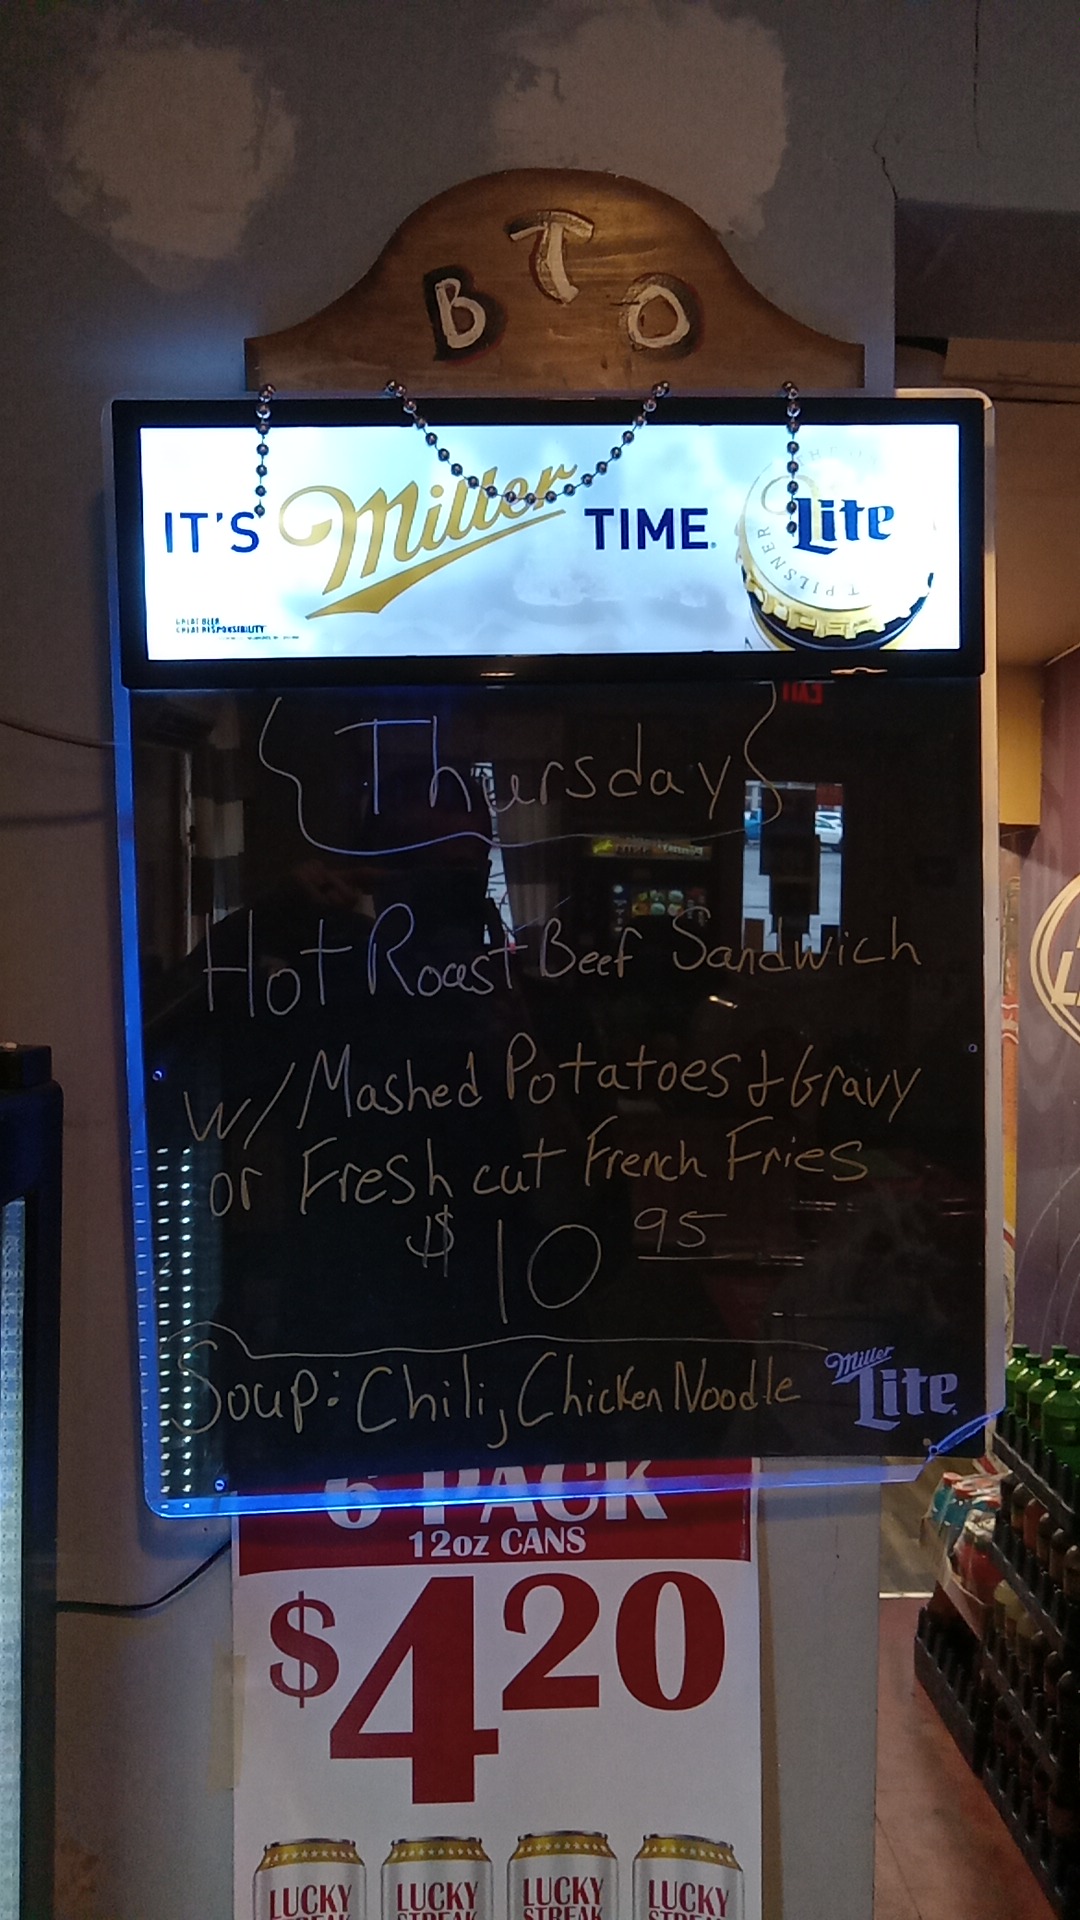 B T O
IT'S Miller TIME. Lite
GREAT BEER
GREAT RESPONSIBILITY
PILSNER
{Thursday}
Hot Roast Beef Sandwich
w/ Mashed Potatoes & Gravy
or Fresh cut French Fries
$10 95
Soup: Chili, Chicken Noodle
Miller
Lite
6 PACK
12oz CANS
$4 20
LUCKY LUCKY LUCKY LUCKY
STREAK STREAK STREAK STREAK